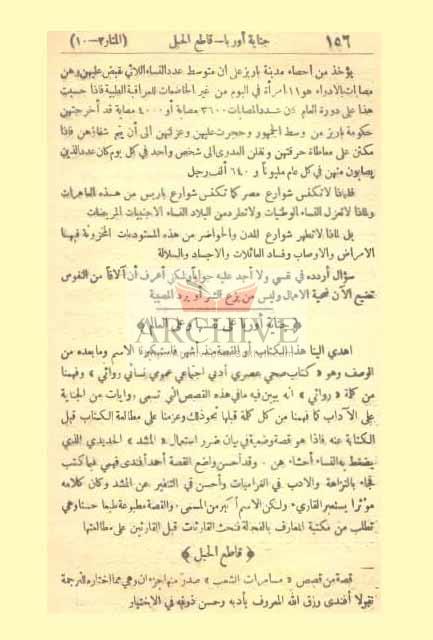 ١٥٦ جناية أوربا — قاطع الحبل (المنار ٣-١٠)
يؤخذ من احصاء مدينة باريز على ان متوسط عدد النساء اللاتي تقبض عليهن وهن
مصابات بالادواء هو ١١ امرأة في اليوم من غير الخاضعات للمراقبة الطبية فاذا حسبت
هذا على دورة العام كان عدد المصابات ٣٦٠٠ مصابة أو ٤٠٠٠ مصابة قد أخرجتهن
حكومة باريز من وسط الجمهور وحجرت عليهن وعزلتهن الى أن يتم شفاؤهن فاذا
مكثن على معاطاة حرفتهن ونقلن العدوى الى شخص واحد في كل يوم كان عدد الذين
يصابون منهن في كل عام مليونا و ٦٤٠ ألف رجل
فلماذا لا تكنس شوارع مصر كما تكنس شوارع باريس من هذه العاهرات
ولماذا لا تعزل النساء الوطنيات ولا تطرد من البلاد النساء الاجنبيات المريضات
بل لماذا لا تطهر شوارع المدن والحواضر من هذه المستودعات المخزونة فيها
الامراض والاوصاب وفساد العائلات والاجساد والسلالة
سؤال أردده في نفسي ولا أجد عليه جوابا ولكن أعرف أن آلافا من النفوس
تضيع الآن ضحية الاهمال وليس من يزع الشر أو يرد المصيبة
﴿ جناية أوربا على نفسها وعلى العالم ﴾
اهدي الينا هذا الكتاب أو القصة منذ أشهر فاستكبرنا الاسم وما بعده من
الوصف وهو « كتاب صحي عصري أدبي اجتماعي عمومي نسائي روائي » وفهمنا
من كلمة « روائي » أنه يبين فيه ما في هذه القصص التي تسمى روايات من الجناية
على الآداب كما فهمنا من كل كلمة قبلها نحو ذلك وعزمنا على مطالعة الكتاب قبل
الكتابة عنه فاذا هو قصة وضعية في بيان ضرر استعمال « المشد » الحديدي الذي
يضغط به النساء أحشاءهن . وقد أحسن واضع القصة أحمد أفندي فهمي فيما كتب
فجاء بالنزاهة والادب في الغراميات وأحسن في التنفير عن المشد وكان كلامه
مؤثرا يستعبر القاريء ولكن الاسم أكبر من المسمى . والقصة مطبوعة طبعا حسنا وهي
تطلب من مكتبة المعارف بالفجالة فنحث القارئات قبل القارئين على مطالعتها
﴿ قاطع الحبل ﴾
قصة من قصص « مسامرات الشعب » صدر منها جزءان وهي مما اختاره لترجمة
نقولا أفندي رزق الله المعروف بأدبه وحسن ذوقه في الاختيار
ARCHIVE